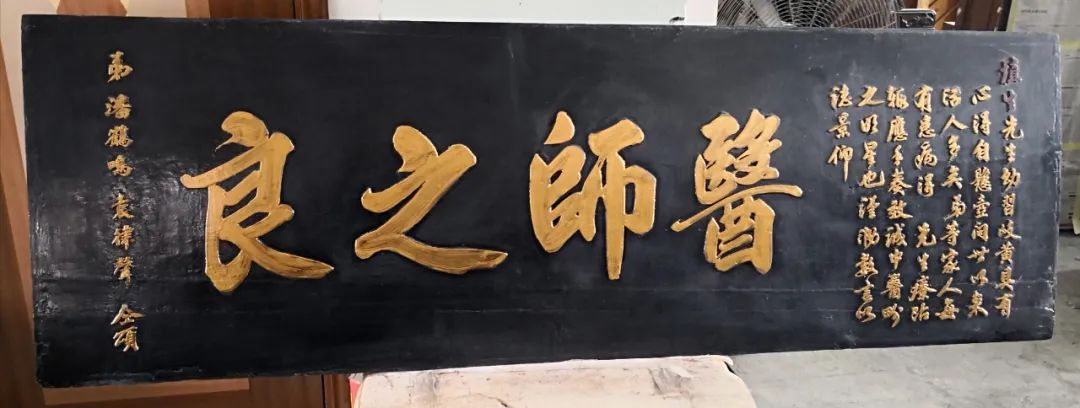 生先生幼習岐黃具有
心得自懸壺問世以來
活人多矣弟等家人每
有患病得 先生
輒應手奏效誠中醫界
之明星也謹泐數言以
誌景仰
醫師之良
弟 潘鶴鳴 袁聲 仝頌